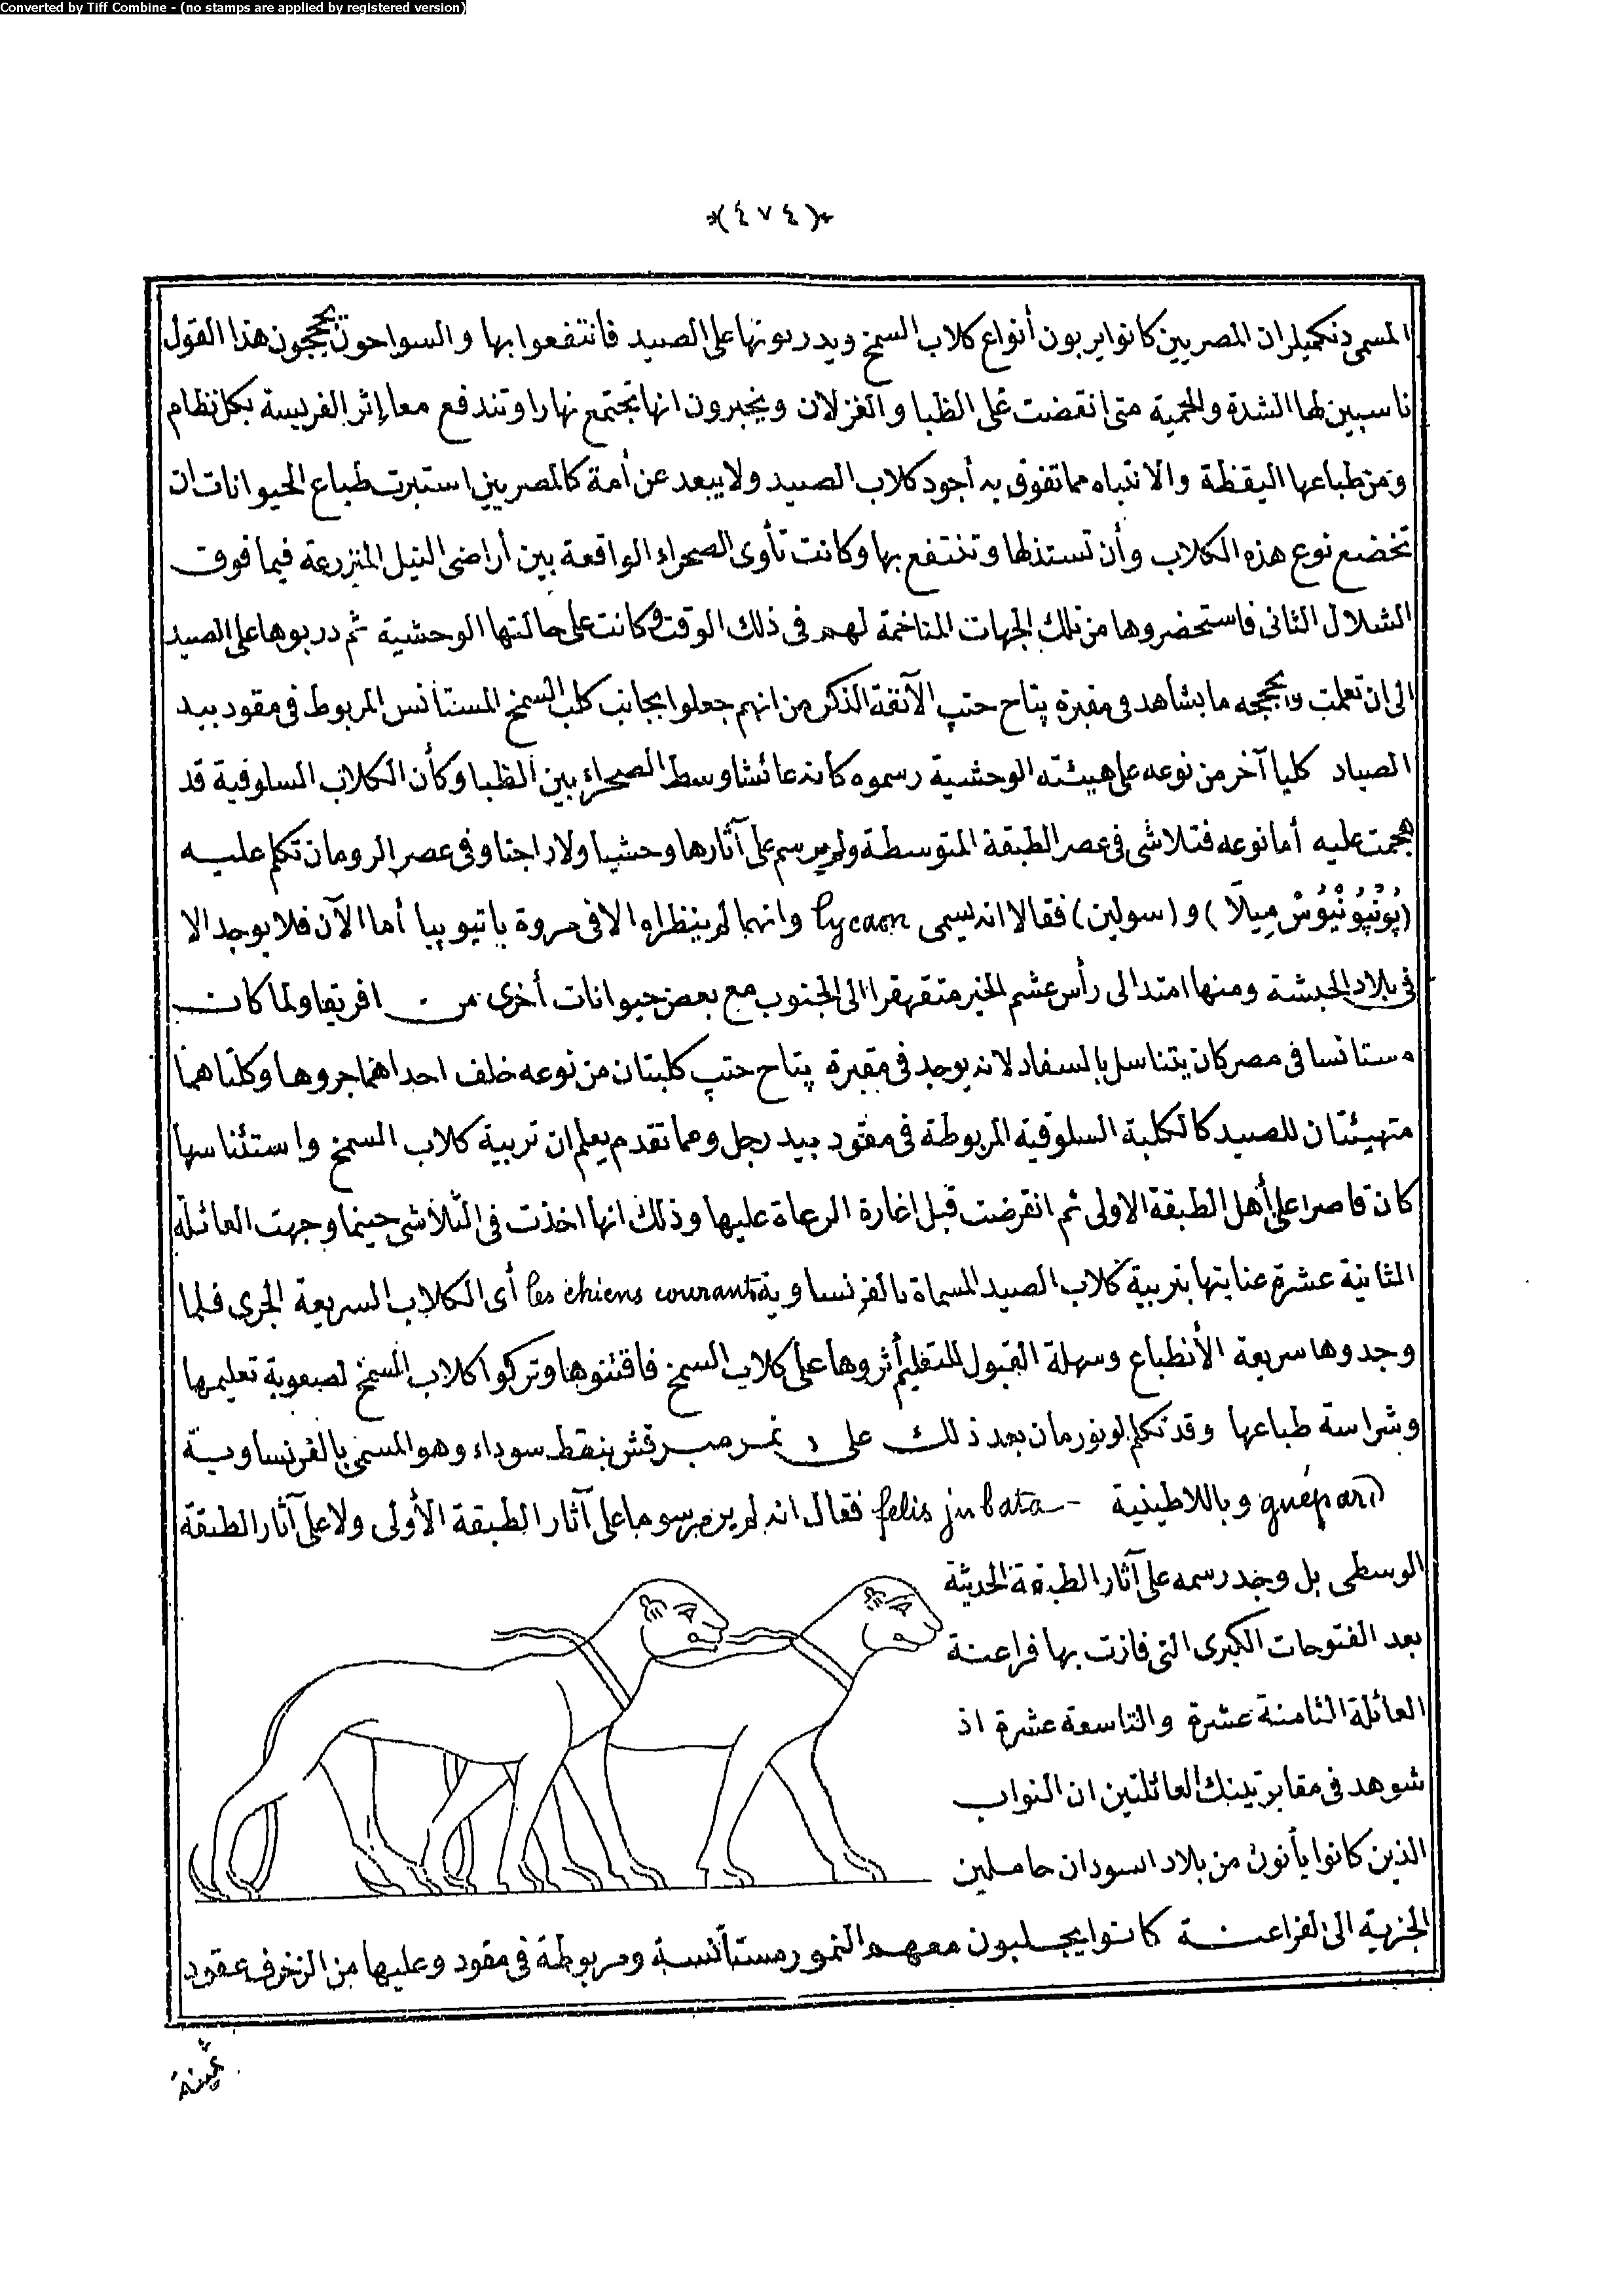 Converted by Tiff Combine - (no stamps are applied by registered version)
(٤٧٤)
المسمى دنكميلر ان المصريين كانوا يربون أنواع كلاب السمخ ويدربونها على الصيد فانتفعوا بها والسواحون يحججون هذا القول
ناسبين لها الشدة والحمية متى انقضت على الظبا والغزلان ويخبرون انها تجتمع نهارا وتندفع معا إثر الفريسة بكل نظام
ومن طباعها اليقظة والانتباه مما تفوق به أجود كلاب الصيد ولا يبعد عن أمة كالمصريين استبرت طباع الحيوانات ان
تخضع نوع هذه الكلاب وأن تستذلها وتنتفع بها وكانت تأوى الصحراء الواقعة بين أراضى النيل المنزرعة فيما فوق
الشلال الثانى فاستحضروها من تلك الجهات المتاخمة لهم فى ذلك الوقت وكانت على حالتها الوحشية ثم دربوها على الصيد
الى ان تعلمت ما يشاهد فى مقبرة پتاح حتپ الآنفة الذكر من انهم جعلوا بجانب كلب السمخ المستأنس المربوط فى مقود بيد
الصياد كلبا آخر من نوعه على هيئته الوحشية رسموه كانه عائشا وسط الصحراء بين الظبا وكأن الكلاب السلوقية قد
هجمت عليه أما نوعه فتلاشى فى عصر الطبقة المتوسطة ولم يرسم على آثارها وحشيا ولا داجنا وفى عصر الرومان تكلم عليه
(پُونْپُونْيُوسْ مِيلاَ) و (سولين) فقالا انه يسمى lycaon وانهما لم ينظراه الا فى مروة باتيوبيا أما الآن فلا يوجد الا
فى بلاد الحبشة ومنها امتد الى رأس عشم الخير متقهقرا الى الجنوب مع بعض حيوانات أخرى من افريقا ولما كان
مستانسا فى مصر كان يتناسل بالسفاد لانه يوجد فى مقبرة پتاح حتپ كلبتان من نوعه خلف احداهما جروها وكلتاهما
متهيئتان للصيد كالكلبة السلوقية المربوطة فى مقود بيد رجل ومما تقدم يعلم ان تربية كلاب السمخ واستئناسها
كان قاصرا على أهل الطبقة الاولى ثم انقرضت قبل اغارة الرعاة عليها وذلك انها اخذت فى التلاشى حينما وجهت العائلة
الثانية عشرة عنايتها بتربية كلاب الصيد المسماة بالفرنساوية les chiens courants أى الكلاب السريعة الجرى فلما
وجدوها سريعة الأنطباع وسهلة القبول للتعليم أثروها على كلاب السمخ فاقتنوها وتركوا كلاب السمخ لصعوبة تعليمها
وشراسة طباعها وقد تكلم لونورمان بعد ذلك على نمر مبرقش بنقط سوداء وهو المسمى بالفرنساوية
guépard وباللاطينية - felis jubata فقال انه لم ير مرسوما على آثار الطبقة الأولى ولا على آثار الطبقة
الوسطى بل وجد رسمه على آثار الطبقة الحديثة
بعد الفتوحات الكبرى التى فازت بها فراعنة
العائلة الثامنة عشرة والتاسعة عشرة اذ
شوهد فى مقابر تينك العائلتين ان النواب
الذين كانوا يأتون من بلاد السودان حاملين
الجزية الى الفراعنة كانوا يجلبون معهم النمور مستأنسة ومربوطة فى مقود وعليها من الزخرف عقود
ثمينة